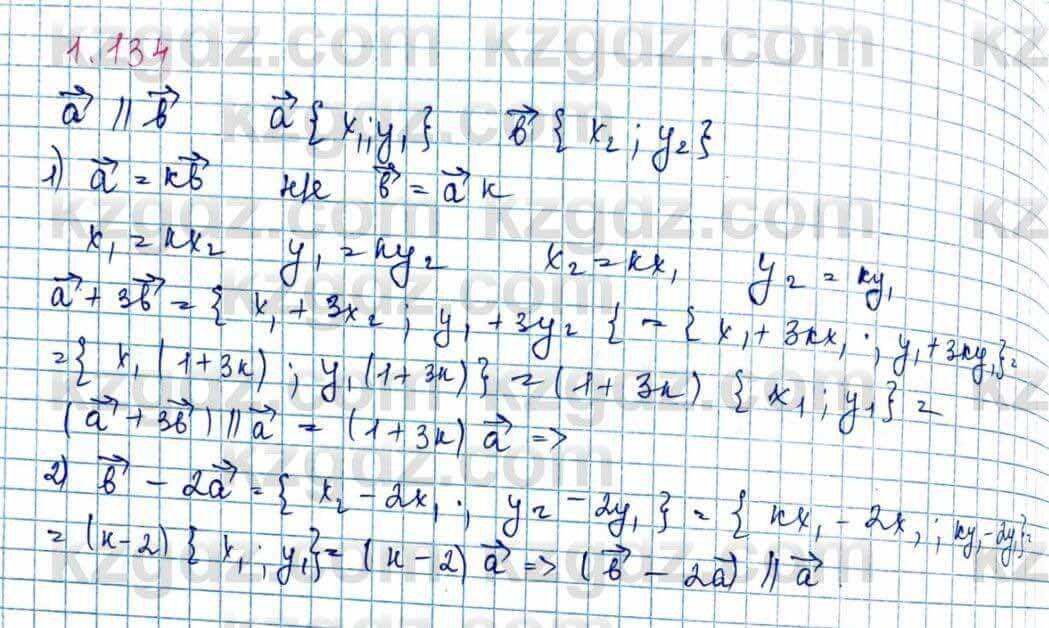 1.134
a⃗ || b⃗   a⃗ {x₁; y₁}   b⃗ {x₂; y₂}
1) a⃗ = кb⃗   b⃗ = a⃗ к
x₁ = кx₂   y₁ = кy₂   x₂ = кx₁   y₂ = кy₁
a⃗ + 3b⃗ = { x₁ + 3x₂ ; y₁ + 3y₂ { = { x₁ + 3кx₁ ; y₁ + 3кy₁} =
= { x₁ (1+3к) ; y₁ (1+3к)} = (1+3к) { x₁ ; y₁} =
(a⃗ + 3b⃗) || a⃗ = (1+3к) a⃗ =>
2) b⃗ - 2a⃗ = { x₂ - 2x₁ ; y₂ - 2y₁ } = { кx₁ - 2x₁ ; кy₁ - 2y₁} =
= (к-2) { x₁ ; y₁} = (к-2) a⃗ => (b⃗ - 2a⃗) || a⃗
kzgdz.com